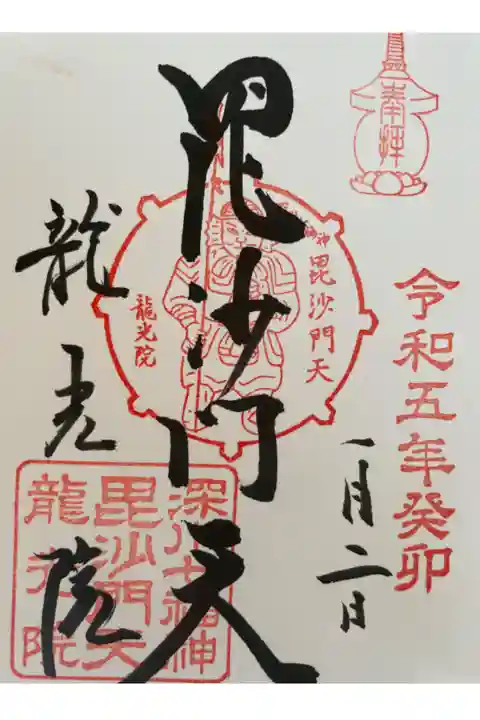 奉拝
令和五年癸卯
一月二日
毘沙門天
毘沙門天
龍光院
深川七福神
毘沙門天
龍光院
龍光院